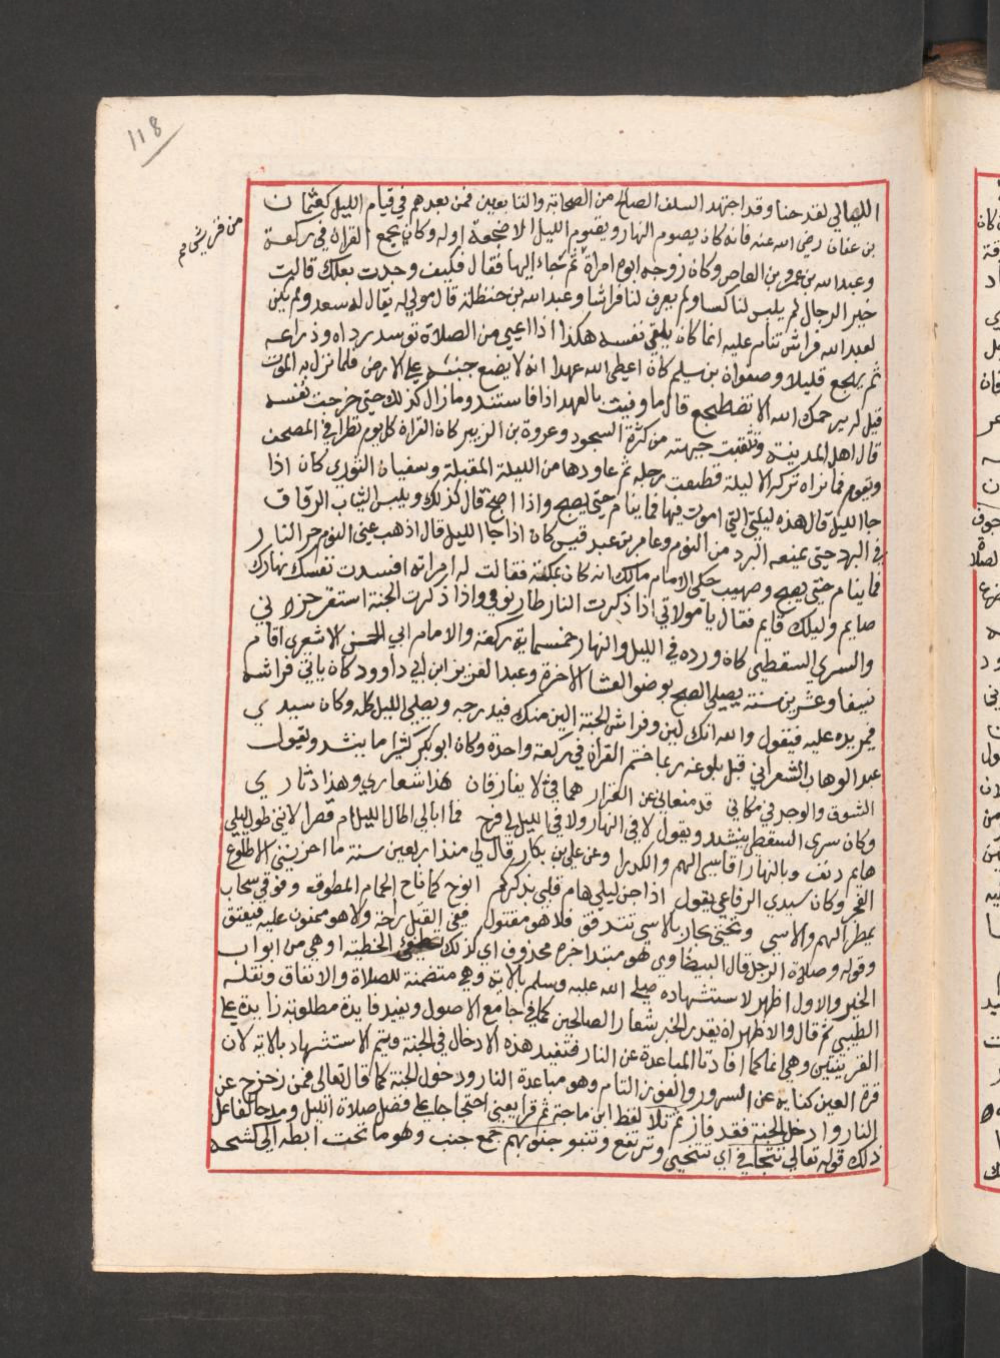 118
من قريش صح
الليالي لقد حنا وقد اجتهد السلف الصالح من الصحابة والتابعين فمن بعدهم في قيام الليل كعثمان
بن عفان رضي الله عنه فانه كان يصوم النهار ويقوم الليل الا ضجعة اوله وكان يجمع القران في ركعة
وعبدالله بن عمرو بن العاص وكان زوجه ابوه امراة ثم جاء اليها فقال فكيف وجدت بعلك قالت
خير الرجال لم يلبس لنا كسا ولم يعرف لنا فراشا وعبدالله بن حنظلة قال مولي له يقال له سعد ولم يكن
لعبدالله فراش تنام عليه انما كان يلقي نفسه هكذا اذا اعيي من الصلاة توسد رداه وذراعه
ثم يهجع قليلا وصفوان بن سليم كان اعطي الله عهدا ان لا يضع جنبه علي الارض فلما نزل به الموت
قيل له يرحمك الله الا تضطجع قال ما وفيت بالعهد اذا فاستند وما زال كذلك حتي خرجت نفسه
قال اهل المدينة وتثقبت جبهته من كثرة السجود وعروة بن الزبير كان القراة كل يوم نظرا في المصحف
ويقوم فما نراه تركه الا ليلة قطعت رجله ثم عاودها من الليلة المقبلة وسفيان الثوري كان اذا
جا الليل قال هذه ليلتي التي اموت فيها فما ينام حتي يصبح واذا اصبح قال كذلك ويلبس الثياب الرقاق
في البرد حتي يمنعه البرد من النوم وعامر بن عبد قيس كان اذا جا الليل قال اذهب عني النوم حر النار
فما ينام حتي يصبح وصهيب حكي الامام مالك انه كان بمكة فقالت له امراته افسدت نفسك نهارك
صايم وليلك قايم فقال يا مولاتي اذا ذكرت النار طار نومي واذا ذكرت الجنة استقر حزني
والسري السقطي كان ورده في الليل والنهار خمسماية ركعة والامام ابي الحسن الاشعري اقام
نيفا وعشرين سنة يصلي الصبح بوضو العشا الاخرة وعبدالعزيز ابن ابي داوود كان ياتي فراشه
فيمر يده عليه فيقول والله انك لين وفراش الجنة الين منك فيدرجه ويصلي الليل كله وكان سيدي
عبدالوهاب الشعراني قبل بلوغه ربما ختم القران في ركعة واحدة وكان ابو بكر كثيرا ما ينشد ويقول
الشوق والوجد في مكاني قد منعاني عن القرار هما في لا يفارقان هذا شعاري وهذا دثاري
وكان سري السقطي ينشد ويقول لا في النهار ولا في الليل لي فرح فما ابالي اطال الليل ام قصرا لانني طول ليلي
هايم دنف وبالنهار اقاسي الهم والكدرا وعن علي بن بكار قال لي منذ اربعين سنة ما احزنني الا طلوع
الفجر وكان سيدي الرفاعي يقول اذا جن ليلي هام قلبي بذكركم انوح كما ناح الحمام المطوق وفوقي سحاب
يمطر الهم والاسي وتحتي بحار بالاسي تتدفق فلا هو مقتول ففي القتل راحة ولا هو ممنون عليه فيعتق
وقوله وصلاة الرجل قال البيضاوي هو مبتدا خبره محذوف اي كذلك تطفئ الخطيئة او هي من ابواب
الخير والاول اظهر لاستشهاده صلي الله عليه وسلم بالاية وهي متضمنة للصلاة والانفاق ونقله
الطيبي ثم قال والاظهر ان يقدر الخبر شعار الصالحين كما في جامع الاصول ويفيد فايدة مطلوبة زايدة علي
القرينتين وهي انما كما افادتا المباعدة عن النار فتفيد هذه الادخال في الجنة فيتم الاستشهاد بالاية لان
قرة العين كناية عن السرور والفوز التام وهو مباعدة النار ودخول الجنة كما قال تعالي فمن زحزح عن
النار وادخل الجنة فقد فاز ثم تلا لفظ ابن ماجة ثم قرا يعني احتجاجا علي فضل صلاة الليل ومدحا لفاعل
ذلك قوله تعالي تتجافي اي تتنحي وترتفع وتنبو جنوبهم جمع جنب وهو ما تحت ابطه الي كشحه